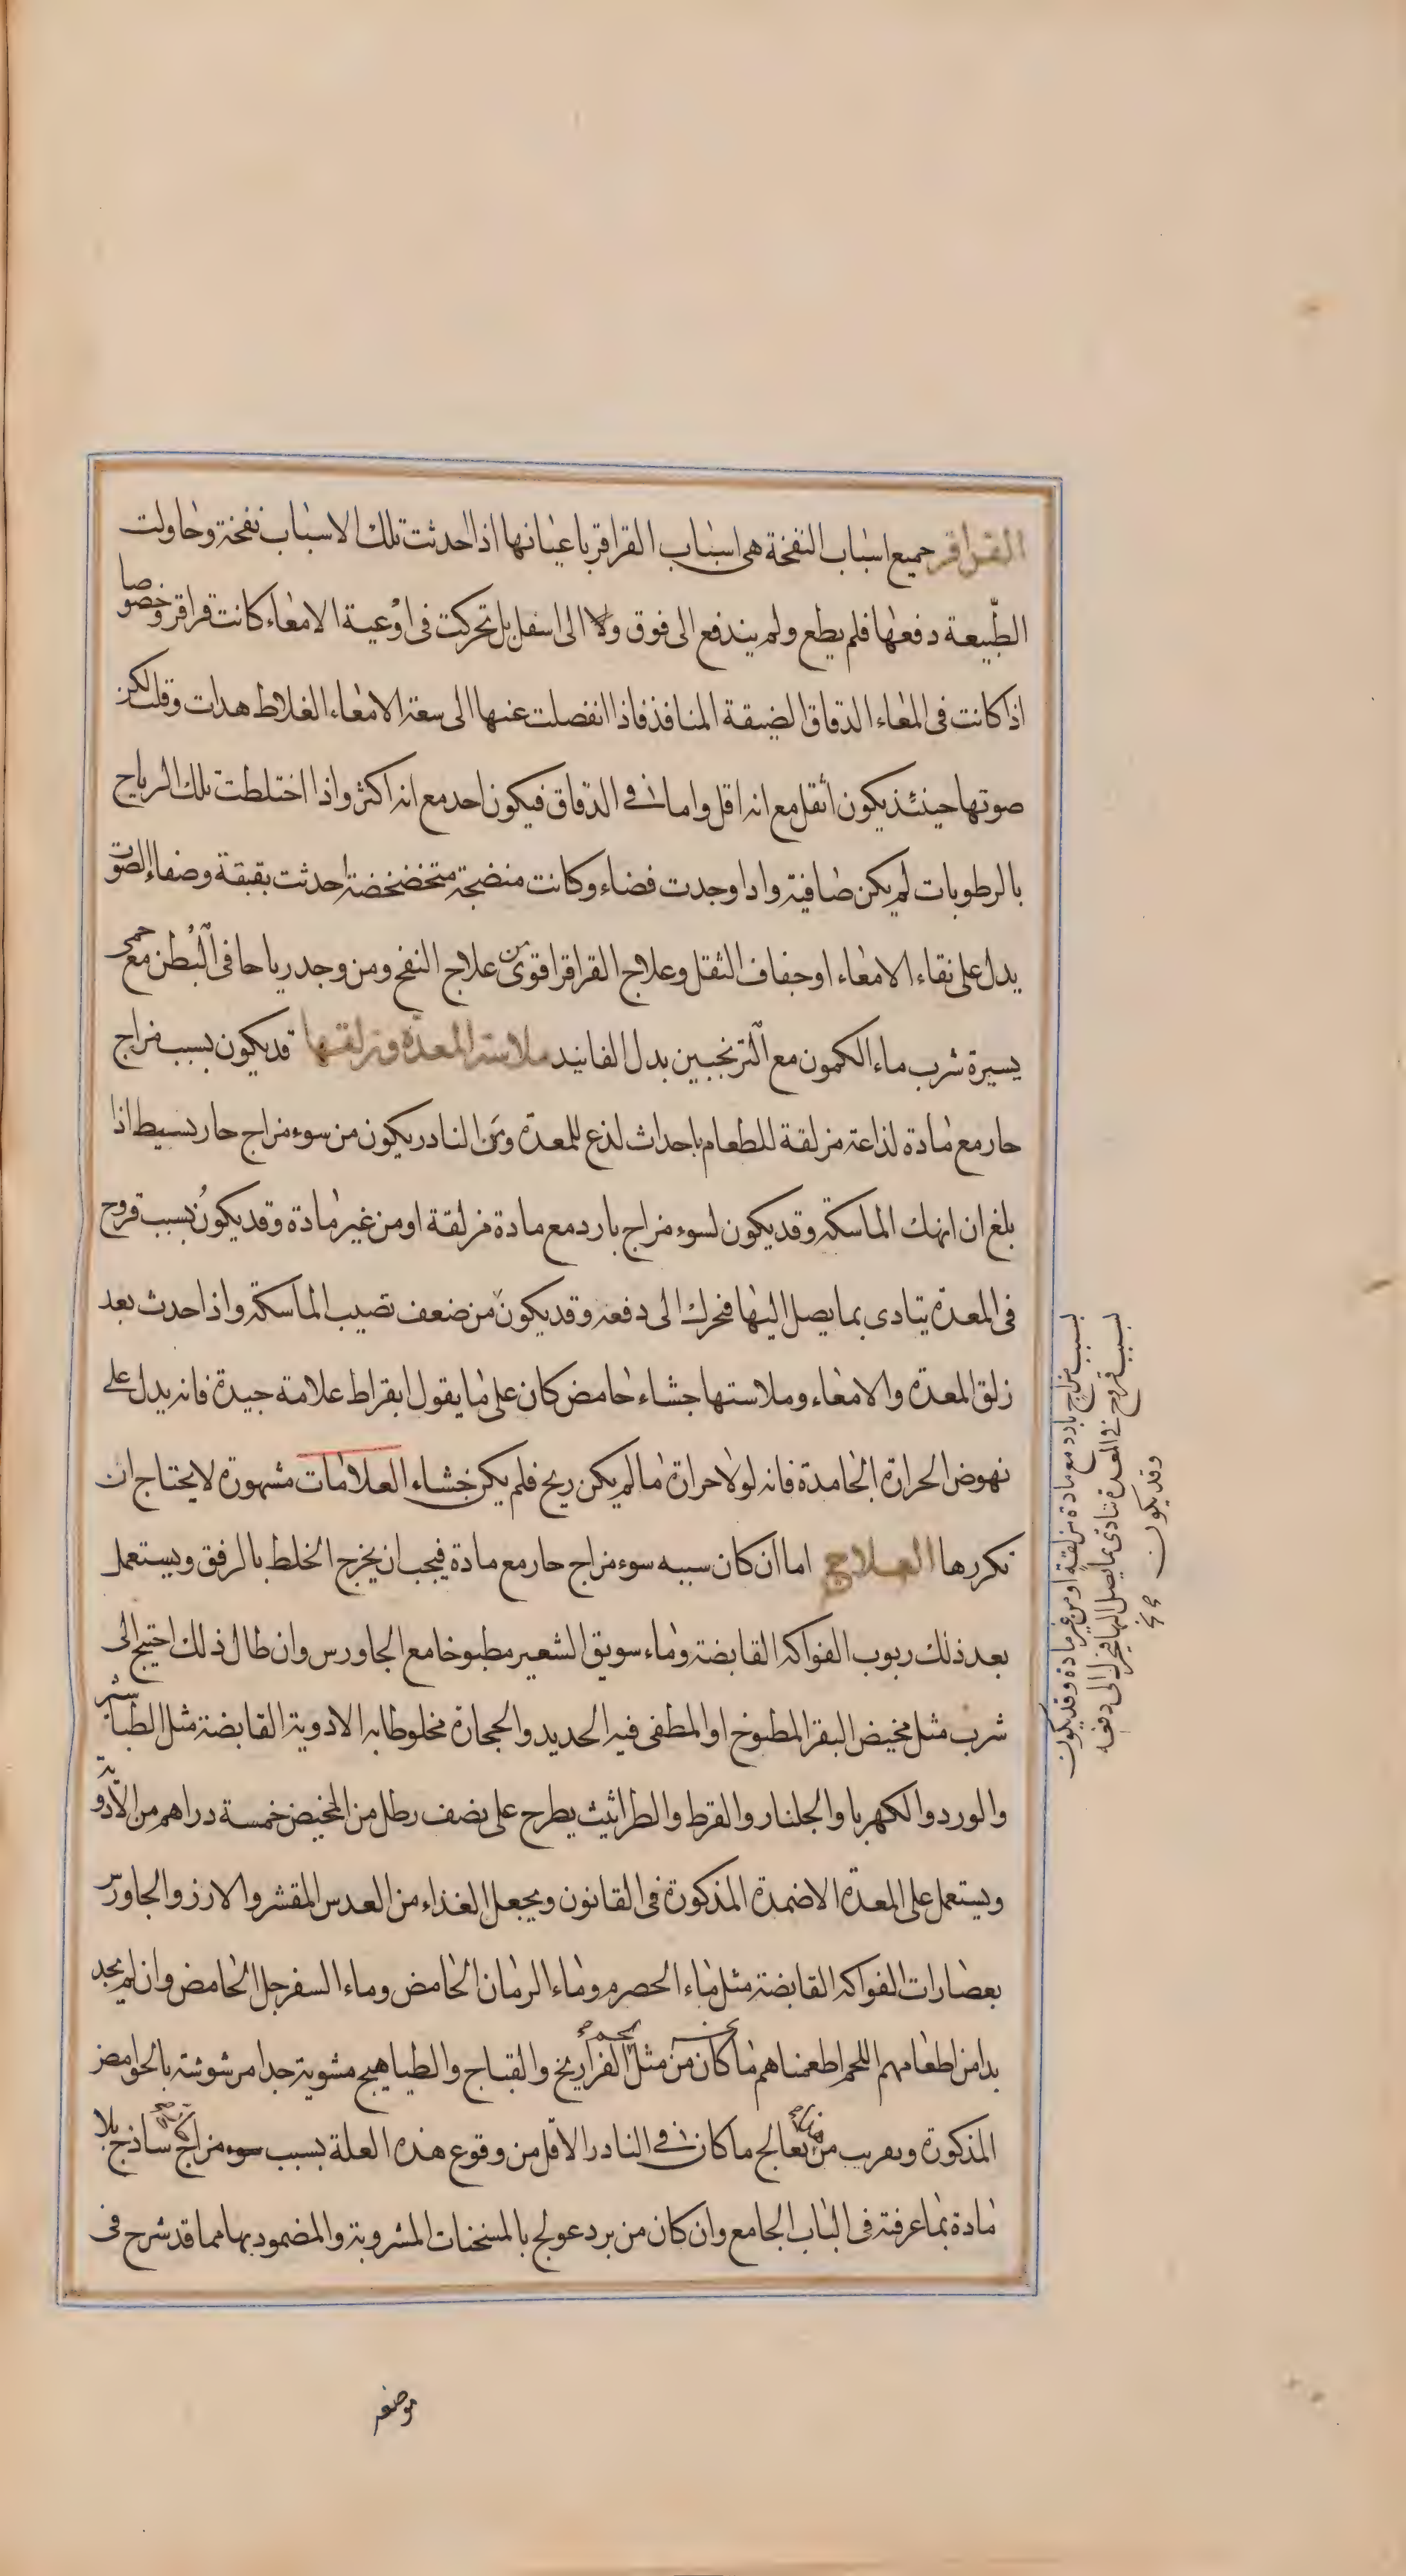 القراقر جميع اسباب النفخة هى اسباب القراقر باعيانها اذا احدثت تلك الاسباب نفخة وحاولت
الطبيعة دفعها فلم يطع ولم يندفع الى فوق ولا الى اسفل بل تحركت فى اوعية الامعاء كانت قراقر وخصوصا
اذا كانت فى المعاء الدقاق الضيقة المنافذ فاذا انفصلت عنها الى سعة الامعاء الغلاظ هدات وقلت لكن
صوتها حينئذ يكون اثقل مع انه اقل واما فى الدقاق فيكون احد مع انه اكثر واذا اختلطت تلك الرياح
بالرطوبات لم يكن صافية واذا وجدت فضاء وكانت منضجة متخضخضة احدثت بقبقة وصفاء الصوت
يدل على نقاء الامعاء او جفاف الثقل وعلاج القراقر اقوى من علاج النفخ ومن وجد رياحا فى البطن مع حمى
يسيرة شرب ماء الكمون مع الترنجبين بدل الفانيد ملاسة المعدة وزلقها قد يكون بسبب مزاج
حار مع مادة لذاعة مزلقة للطعام باحداث لذع للمعدة ومن النادر يكون من سوء مزاج حار بسيط اذا
بلغ ان انهك الماسكة وقد يكون لسوء مزاج بارد مع مادة مزلقة او من غير مادة وقد يكون بسبب قروح
فى المعدة يتادى بما يصل اليها فتحرك الى دفعه وقد يكون من ضعف تصيب الماسكة واذا حدث بعد
زلق المعدة والامعاء وملاستها جشاء حامض كان على ما يقول ابقراط علامة جيدة فانه يدل على
نهوض الحرارة الجامدة فانه لولا حرارة ما لم يكن ريح فلم يكن خشاء العلامات مشهورة لا يحتاج ان
نكررها العلاج اما ان كان سببه سوء مزاج حار مع مادة فيجب ان يخرج الخلط بالرفق ويستعمل
بعد ذلك ربوب الفواكه القابضة وماء سويق الشعير مطبوخا مع الجاورس وان طال ذلك احتيج الى
شرب مثل مخيض البقر المطبوخ او المطفى فيه الحديد والحجارة مخلوطا به الادوية القابضة مثل الطباشير
والورد والكهربا والجلنار والقرط والطراثيث يطرح على نصف رطل من المخيض خمسة دراهم من الادوية
ويستعمل على المعدة الاضمدة المذكورة فى القانون ويجعل الغذاء من العدس المقشر والارز والجاورس
بعصارات الفواكه القابضة مثل ماء الحصرم وماء الرمان الحامض وماء السفرجل الحامض وان لم يجد
بدا من اطعامهم اللحم اطعمناهم ما كان من مثل الفراريخ والقباج والطياهيج مشوية جدا مرشوشة بالحوامض
المذكورة وبقريب من يعالج ما كان فى النادر الاقل من وقوع هذه العلة بسبب سوء مزاج ساذج بلا
مادة بما عرفته فى الباب الجامع وان كان من برد عولج بالمسخنات المشروبة والمضمود بها مما قد شرح فى
بسبب مزاج بارد مع مادة مزلقة او من غير مادة وقد يكون
بسبب قروح فى المعدة تتاذى بما يصل اليها فيحرك الى دفعه
وقد يكون
موضعه